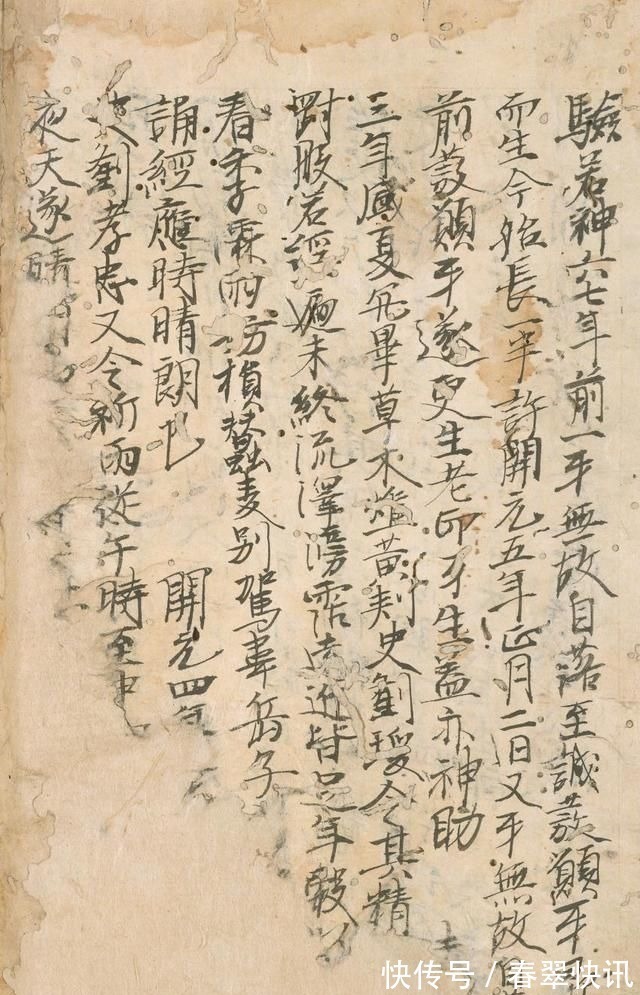 驗若神六七年前一牙無故自落至誠發願牙
而生今始長一半許開元五年正月二日又牙無故
前發願牙遂更生老而牙生蓋亦神助
三年盛夏亢旱草木燋黃刺史劉瑗令其精
對般若經遍未終流澤滂霑遠近皆足年穀以
春季霖雨妨損蠶麥別駕韋岳子
誦經應時晴朗 開元四年
史劉孝忠又令祈雨從午時至
夜天遂晴
快传号/春翠快讯